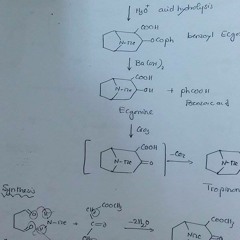 H₃O⁺ acid hydrolysis
COOH
N-Me
OCOph
benzoyl Ecg
Ba(OH)₂
COOH
N-Me
OH
+ phCOOH
Benzoic acid
Ecgonine
CrO₃
COOH
N-Me
=O
-CO₂
N-Me
Tropinon
Synthesis
COOCH₃
N-Me
+
-2H₂O
COOCH₃
NMe